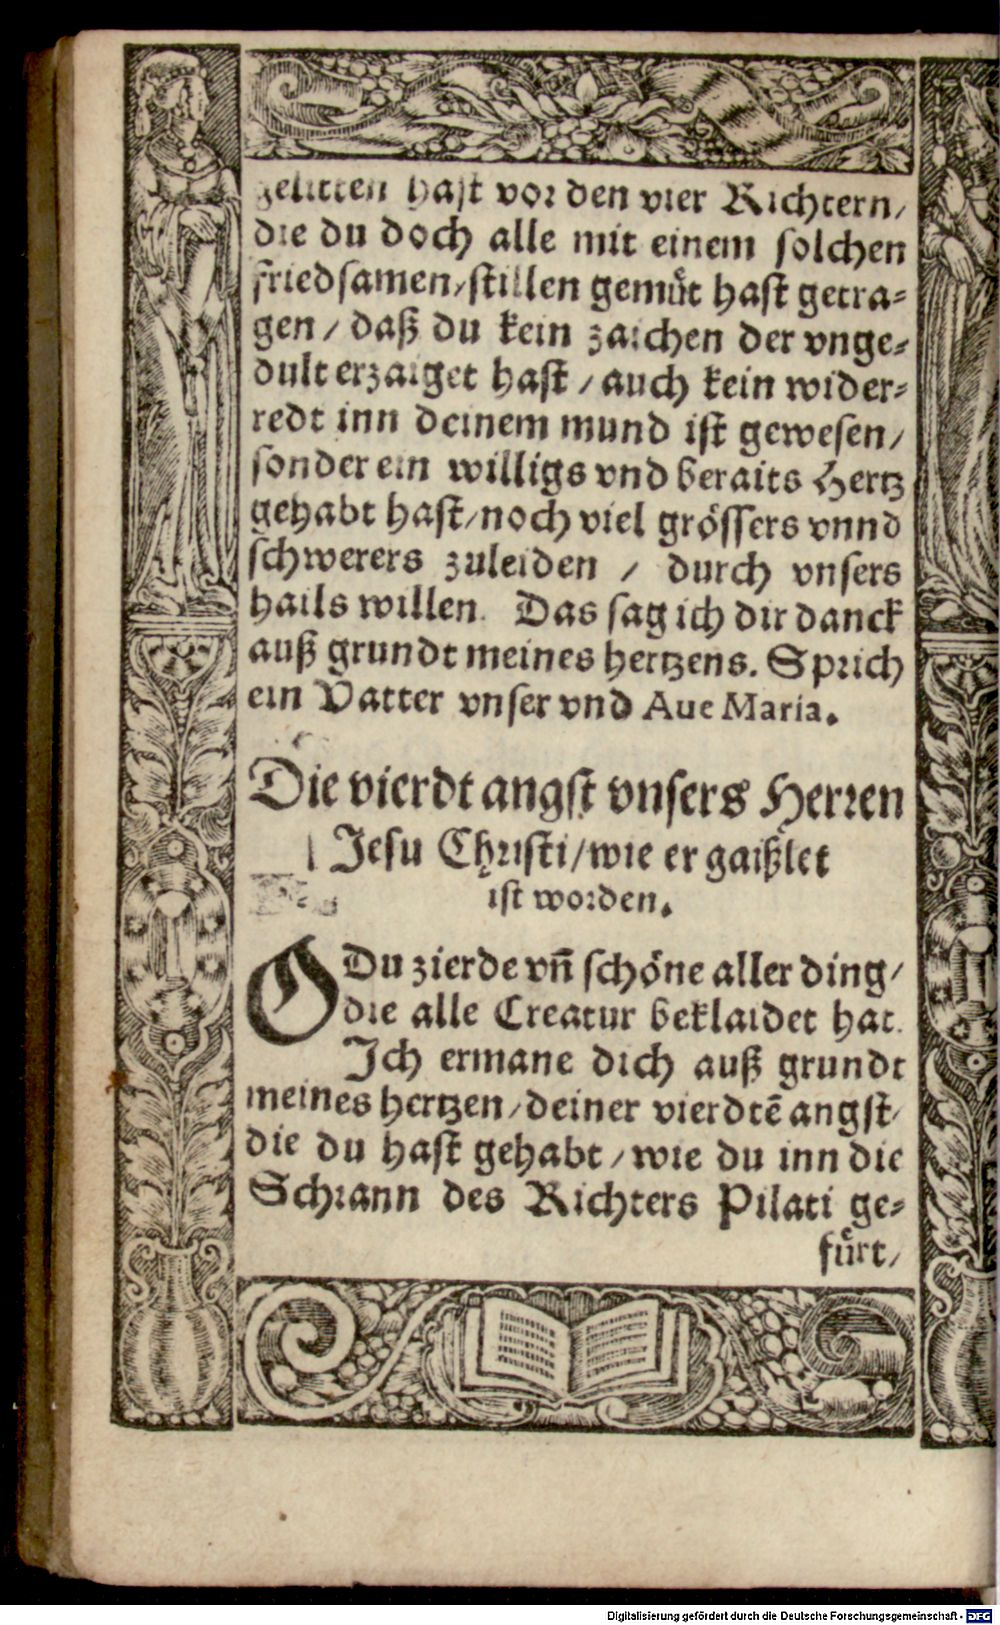 gelitten hast vor den vier Richtern/
die du doch alle mit einem solchen
friedsamen/stillen gemuͤt hast getra⸗
gen / daß du kein zaichen der vnge⸗
dult erzaiget hast / auch kein wider⸗
redt inn deinem mund ist gewesen/
sonder ein willigs vnd beraits Hertz
gehabt hast/noch viel grössers vnnd
schwerers zuleiden / durch vnsers
hails willen. Das sag ich dir danck
auß grundt meines hertzens. Sprich
ein Vatter vnser vnd Aue Maria.
Die vierdt angst vnsers Herren
Jesu Christi/wie er gaißlet
ist worden.
O Du zierde vn̄ schöne aller ding/
die alle Creatur beklaidet hat.
Ich ermane dich auß grundt
meines hertzen/deiner vierdtē angst/
die du hast gehabt/wie du inn die
Schrann des Richters Pilati ge⸗
fuͤrt/
Digitalisierung gefördert durch die Deutsche Forschungsgemeinschaft - DFG